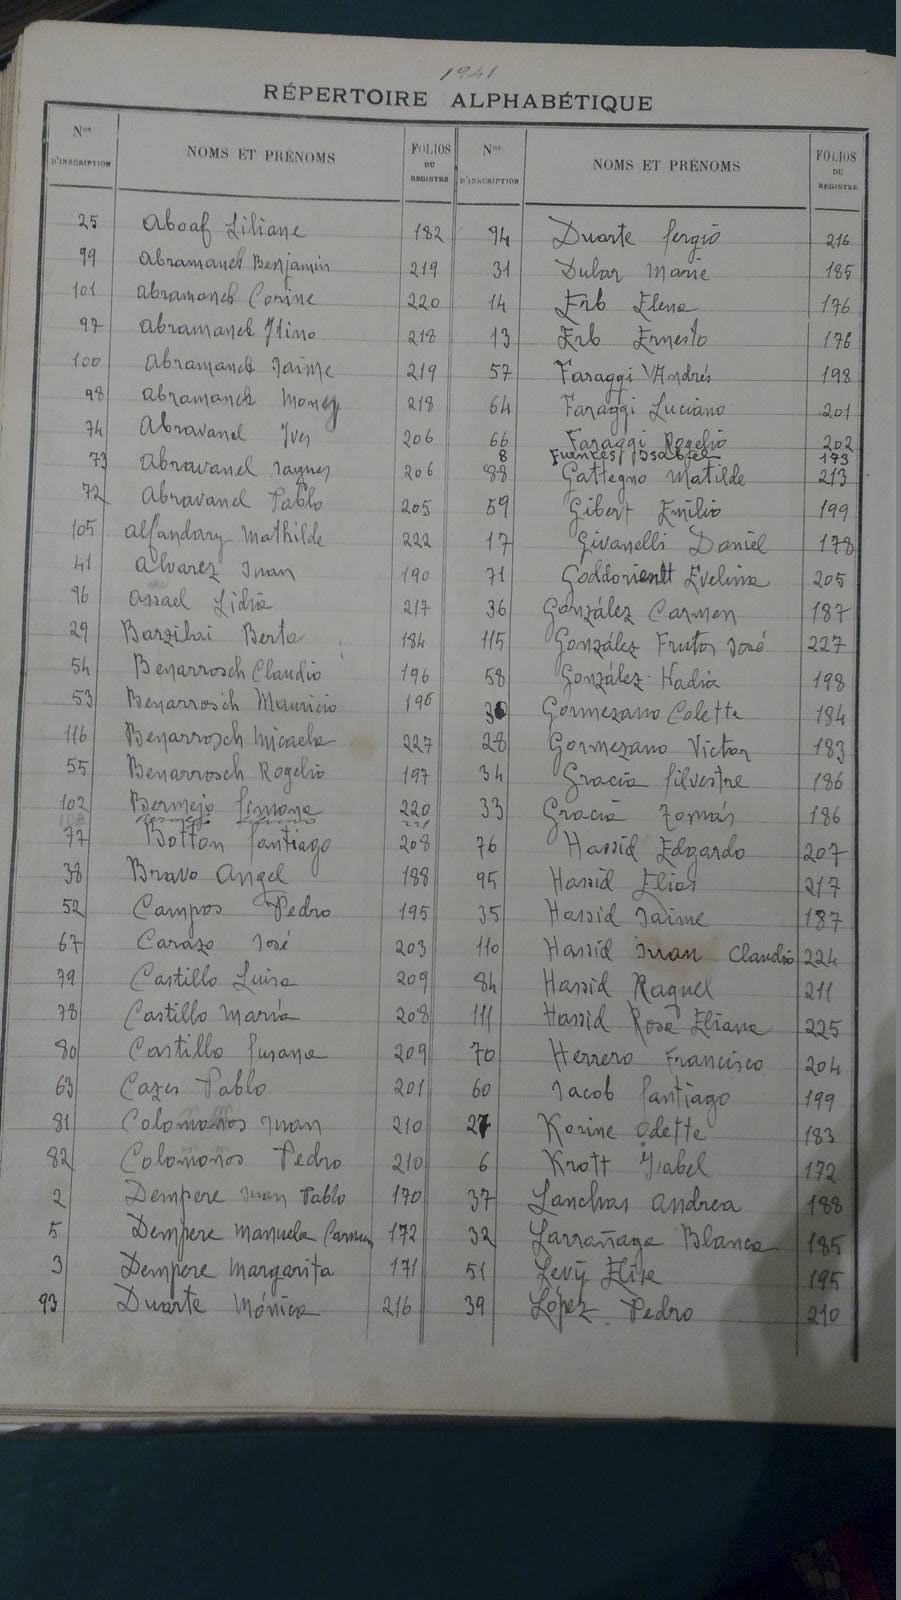 1941
RÉPERTOIRE ALPHABÉTIQUE
Nos D'INSCRIPTION NOMS ET PRÉNOMS FOLIOS DU REGISTRE
25 Aboaf Liliane 182
99 Abramanch Benjamin 219
101 Abramanch Corine 220
97 Abramanch 218
100 Abramanch Jaime 219
98 Abramanch 218
74 Abravanel Yves 206
73 Abravanel Jaques 206
72 Abravanel Pablo 205
105 Alfandary Mathilde 222
41 Alvarez Juan 190
96 Assael Lidia 217
29 Barzilai Berta 184
54 Benarrosch Claudio 196
53 Benarrosch Mauricio 196
116 Benarrosch Micaela 227
55 Benarrosch Rogelio 197
102 Bermejo Simona 220
77 Botton Santiago 208
38 Bravo Angel 188
52 Campos Pedro 195
67 Carazo José 203
79 Castillo Luisa 209
78 Castillo María 208
80 Castillo Susana 209
63 Cazes Pablo 201
81 Colomonos Juan 210
82 Colomonos Pedro 210
2 Dempere Juan Pablo 170
5 Dempere Manuela Carmen 172
3 Dempere Margarita 171
93 Duarte Mónica 216
Nos D'INSCRIPTION NOMS ET PRÉNOMS FOLIOS DU REGISTRE
94 Duarte Sergio 216
31 Dubar Marie 185
14 Erb Elena 176
13 Erb Ernesto 176
57 Faraggi Andrés 198
64 Faraggi Luciano 201
66 Faraggi Rogelio 202
8 Fuentes Isabel 173
88 Gattegno Matilde 213
59 Gibert Emilio 199
17 Givanelli Daniel 178
71 Evelina 205
36 González Carmen 187
115 González Frutos José 227
58 González Nadia 198
30 Gormezano Colette 184
28 Gormezano Victor 183
34 Gracia Silvestre 186
33 Gracia Tomás 186
76 Hassid Edgardo 207
95 Hassid Elias 217
35 Hassid Jaime 187
110 Hassid Juan Claudio 224
84 Hassid Raquel 211
111 Hassid Rosa Eliana 225
70 Herrero Francisco 204
60 Jacob Santiago 199
27 Korine Odette 183
6 Krott Isabel 172
37 Lanchas Andrea 188
32 Larrañaga Blanca 185
51 Levy Elise 195
39 López Pedro 210